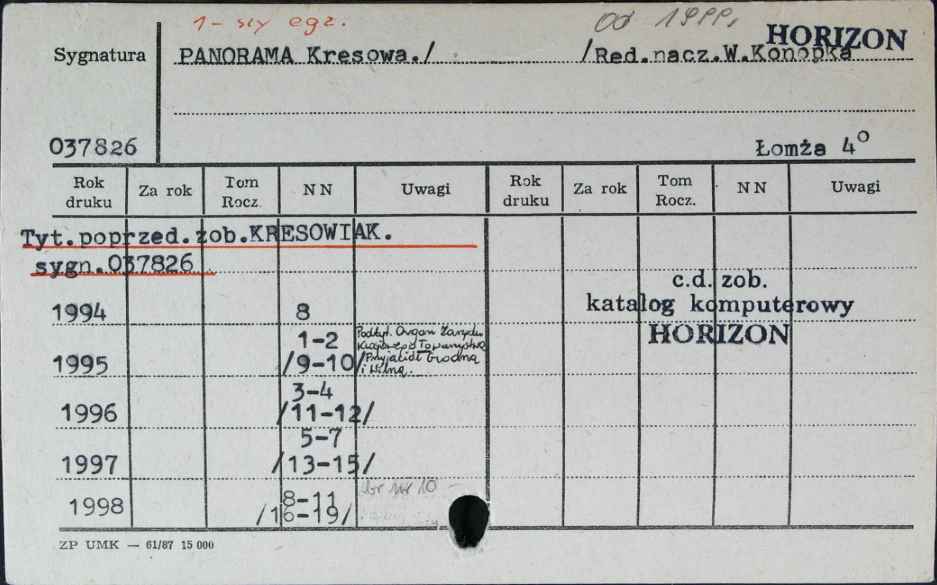 1-szy egz.
od 1999,
HORIZON
Sygnatura
PANORAMA Kresowa./ /Red.nacz.W.Konopka
037826
Łomża 4°
Rok druku Za rok Tom Rocz. NN Uwagi Rok druku Za rok Tom Rocz. NN Uwagi
Tyt.poprzed.zob.KRESOWIAK.
sygn.037826
c.d. zob.
katalog komputerowy
HORIZON
1994 8
1-2 Podtyt. Organ Zarządu
Krajowego Towarzystwa
1995 /9-10/ Przyjaciół Grodna
i Wilna.
3-4
1996 /11-12/
5-7
1997 /13-15/
8-11 nr 10
1998 /16-19/
ZP UMK — 61/87 15 000